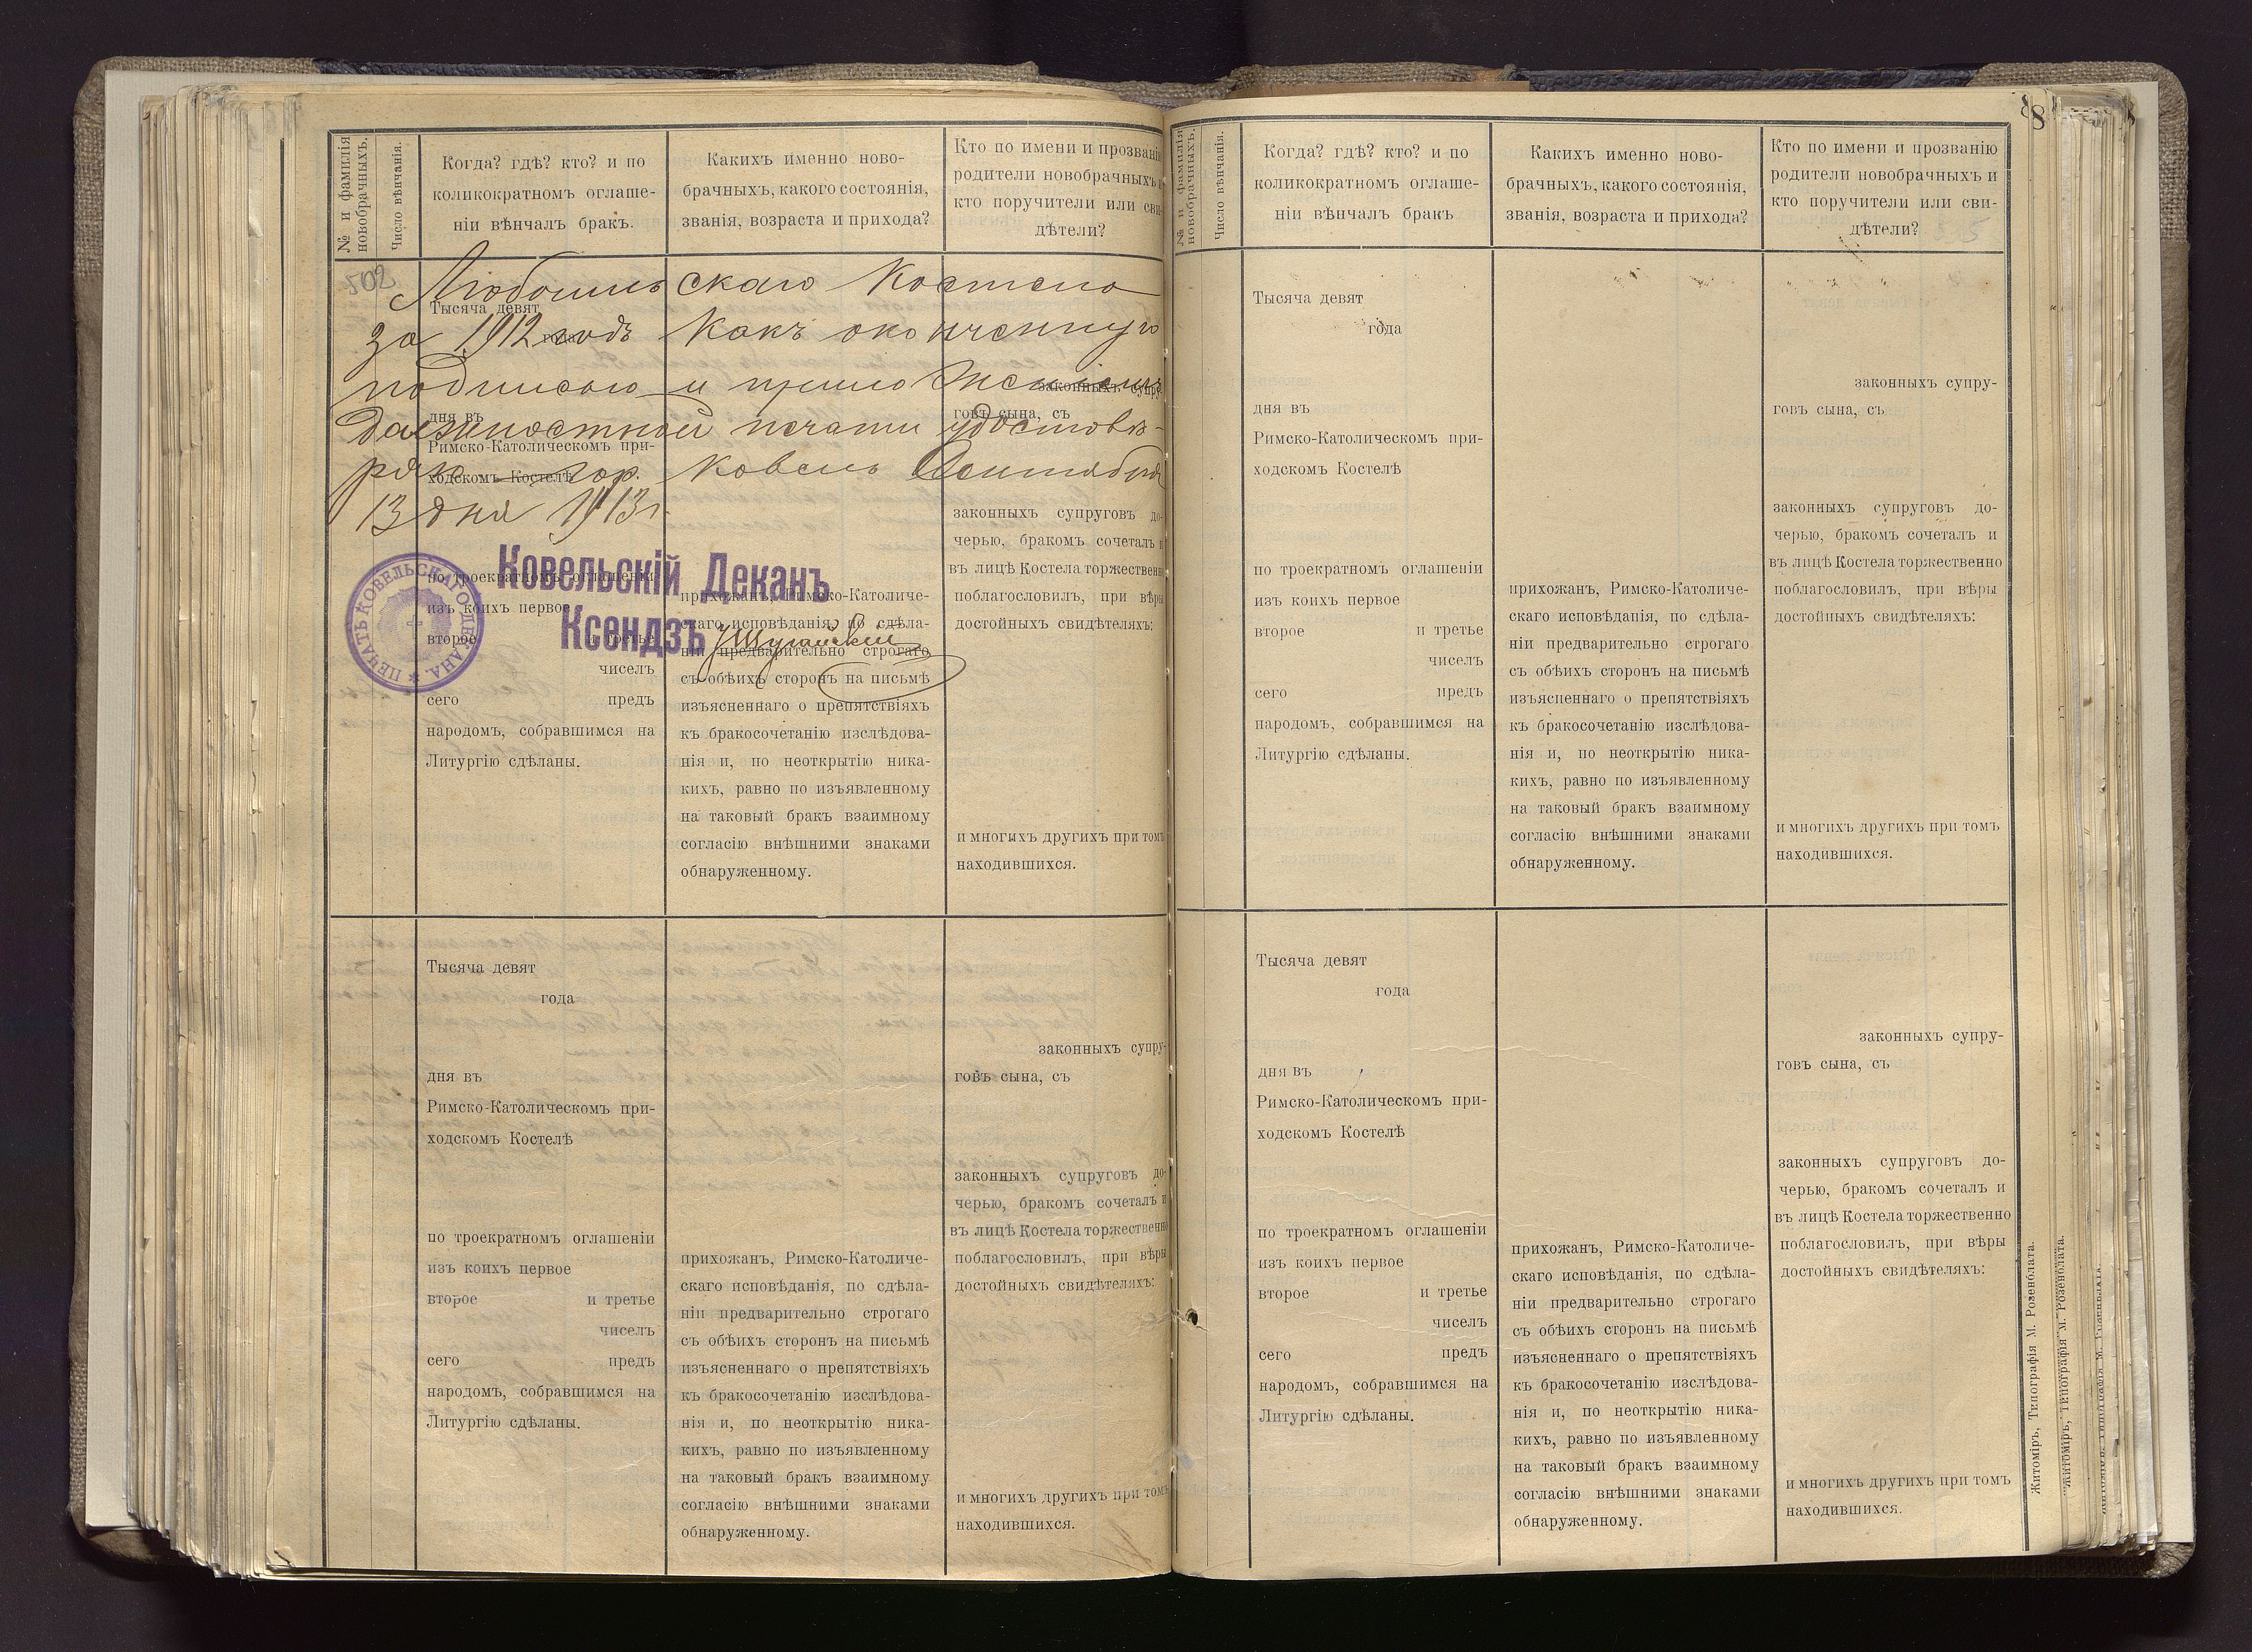 № и фамилія новобрачныхъ.
Число вѣнчанія.
Когда? гдѣ? кто? и по
коликократномъ оглаше-
ніи вѣнчалъ бракъ.
Какихъ именно ново-
брачныхъ, какого состоянія,
званія, возраста и прихода?
Кто по имени и прозванію
родители новобрачныхъ и
кто поручители или сви-
дѣтели?
502
Любомльскаго Костела
за 1912 годъ какъ оконченную
подписью и приложеніемъ
должностной печати удостовѣ-
ряю гор. Ковель Сентября
13 дня 1913 г.
Ковельскій Деканъ
Ксендзъ
ПЕЧАТЬ КОВЕЛЬСКАГО ДЕКАНА
Тысяча девят
года
дня въ
Римско-Католическомъ при-
ходскомъ Костелѣ
по троекратномъ оглашеніи
изъ коихъ первое
второе и третье
чиселъ
сего предъ
народомъ, собравшимся на
Литургію сдѣланы.
прихожанъ, Римско-Католиче-
скаго исповѣданія, по сдѣла-
ніи предварительно строгаго
съ обѣихъ сторонъ на письмѣ
изъясненнаго о препятствіяхъ
къ бракосочетанію изслѣдова-
нія и, по неоткрытію ника-
кихъ, равно по изъявленному
на таковый бракъ взаимному
согласію внѣшними знаками
обнаруженному.
законныхъ супру-
говъ сына, съ
законныхъ супруговъ до-
черью, бракомъ сочеталъ и
въ лицѣ Костела торжественно
поблагословилъ, при вѣры
достойныхъ свидѣтеляхъ:
и многихъ другихъ при томъ
находившихся.
Тысяча девят
года
дня въ
Римско-Католическомъ при-
ходскомъ Костелѣ
по троекратномъ оглашеніи
изъ коихъ первое
второе и третье
чиселъ
сего предъ
народомъ, собравшимся на
Литургію сдѣланы.
прихожанъ, Римско-Католиче-
скаго исповѣданія, по сдѣла-
ніи предварительно строгаго
съ обѣихъ сторонъ на письмѣ
изъясненнаго о препятствіяхъ
къ бракосочетанію изслѣдова-
нія и, по неоткрытію ника-
кихъ, равно по изъявленному
на таковый бракъ взаимному
согласію внѣшними знаками
обнаруженному.
законныхъ супру-
говъ сына, съ
законныхъ супруговъ до-
черью, бракомъ сочеталъ и
въ лицѣ Костела торжественно
поблагословилъ, при вѣры
достойныхъ свидѣтеляхъ:
и многихъ другихъ при томъ
находившихся.
№ и фамилія новобрачныхъ.
Число вѣнчанія.
Когда? гдѣ? кто? и по
коликократномъ оглаше-
ніи вѣнчалъ бракъ
Какихъ именно ново-
брачныхъ, какого состоянія,
званія, возраста и прихода?
Кто по имени и прозванію
родители новобрачныхъ и
кто поручители или сви-
дѣтели?
Тысяча девят
года
дня въ
Римско-Католическомъ при-
ходскомъ Костелѣ
по троекратномъ оглашеніи
изъ коихъ первое
второе и третье
чиселъ
сего предъ
народомъ, собравшимся на
Литургію сдѣланы.
прихожанъ, Римско-Католиче-
скаго исповѣданія, по сдѣла-
ніи предварительно строгаго
съ обѣихъ сторонъ на письмѣ
изъясненнаго о препятствіяхъ
къ бракосочетанію изслѣдова-
нія и, по неоткрытію ника-
кихъ, равно по изъявленному
на таковый бракъ взаимному
согласію внѣшними знаками
обнаруженному.
законныхъ супру-
говъ сына, съ
законныхъ супруговъ до-
черью, бракомъ сочеталъ и
въ лицѣ Костела торжественно
поблагословилъ, при вѣры
достойныхъ свидѣтеляхъ:
и многихъ другихъ при томъ
находившихся.
Тысяча девят
года
дня въ
Римско-Католическомъ при-
ходскомъ Костелѣ
по троекратномъ оглашеніи
изъ коихъ первое
второе и третье
чиселъ
сего предъ
народомъ, собравшимся на
Литургію сдѣланы.
прихожанъ, Римско-Католиче-
скаго исповѣданія, по сдѣла-
ніи предварительно строгаго
съ обѣихъ сторонъ на письмѣ
изъясненнаго о препятствіяхъ
къ бракосочетанію изслѣдова-
нія и, по неоткрытію ника-
кихъ, равно по изъявленному
на таковый бракъ взаимному
согласію внѣшними знаками
обнаруженному.
законныхъ супру-
говъ сына, съ
законныхъ супруговъ до-
черью, бракомъ сочеталъ и
въ лицѣ Костела торжественно
поблагословилъ, при вѣры
достойныхъ свидѣтеляхъ:
и многихъ другихъ при томъ
находившихся.
Житоміръ, Типографія М. Розенблата.
Житоміръ, Типографія М. Розенблата.